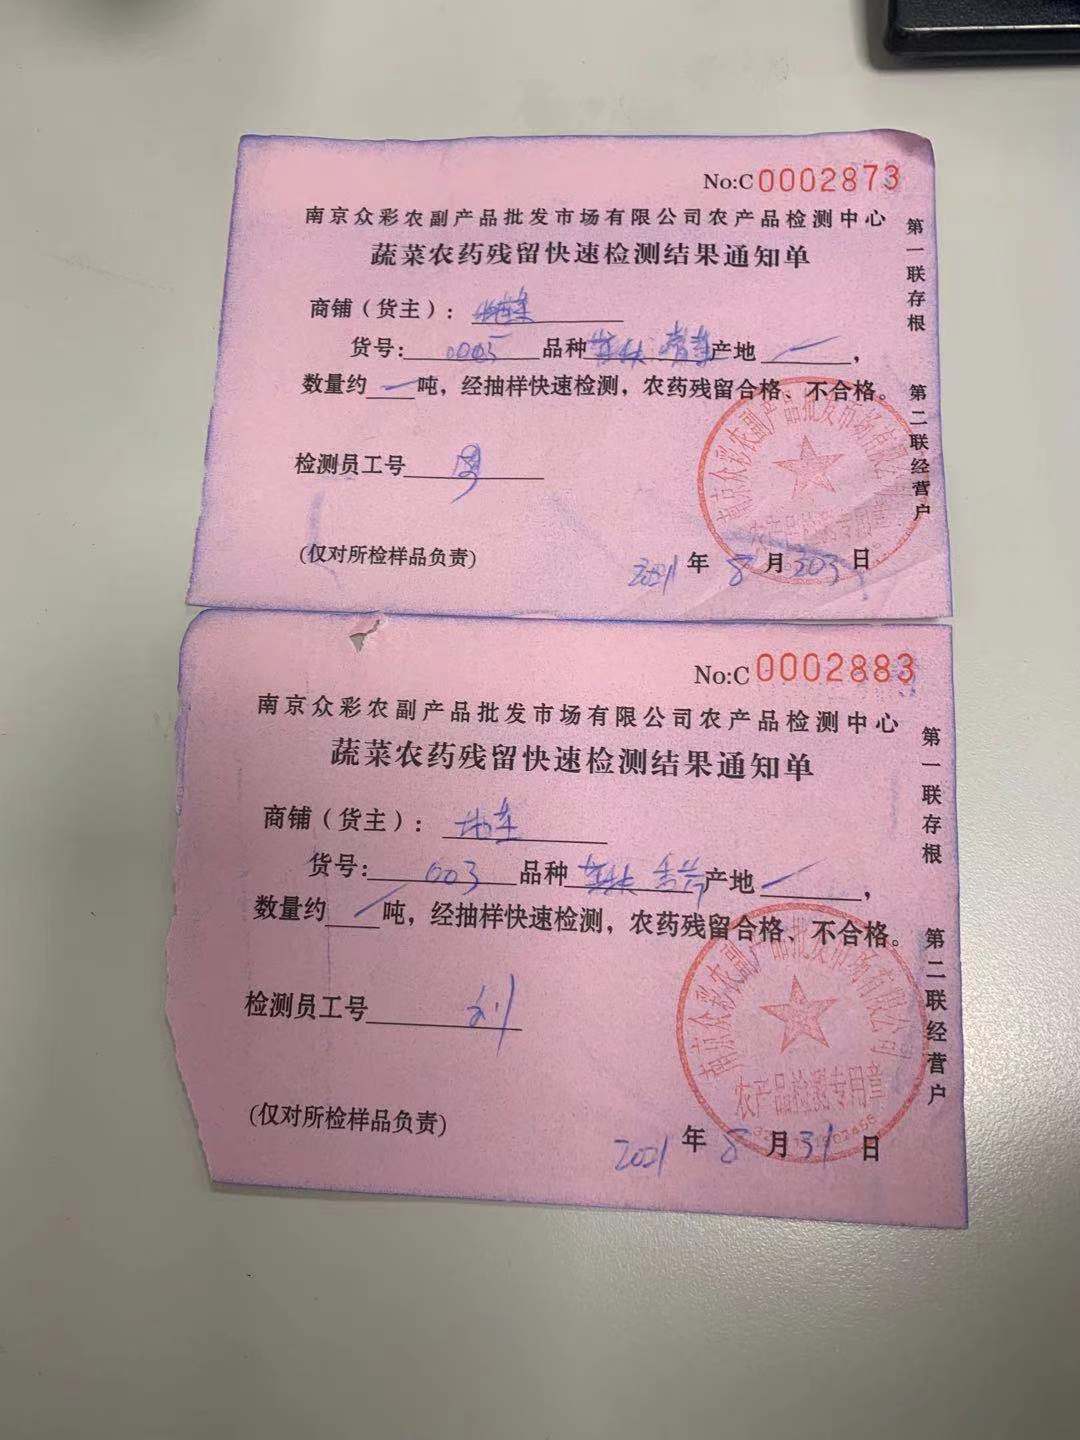 No:C 0002873
南京众彩农副产品批发市场有限公司农产品检测中心
蔬菜农药残留快速检测结果通知单
商铺（货主）：
货号: 0005 品种 产地 ，
数量约 吨，经抽样快速检测，农药残留合格、不合格。
检测员工号
(仅对所检样品负责)
2021年8月 日
第一联存根
第二联经营户
南京众彩农副产品批发市场有限公司
农产品检测专用章
No:C 0002883
南京众彩农副产品批发市场有限公司农产品检测中心
蔬菜农药残留快速检测结果通知单
商铺（货主）：
货号: 003 品种 产地 ，
数量约 吨，经抽样快速检测，农药残留合格、不合格。
检测员工号 刘
(仅对所检样品负责)
2021年8月31日
第一联存根
第二联经营户
南京众彩农副产品批发市场有限公司
农产品检测专用章